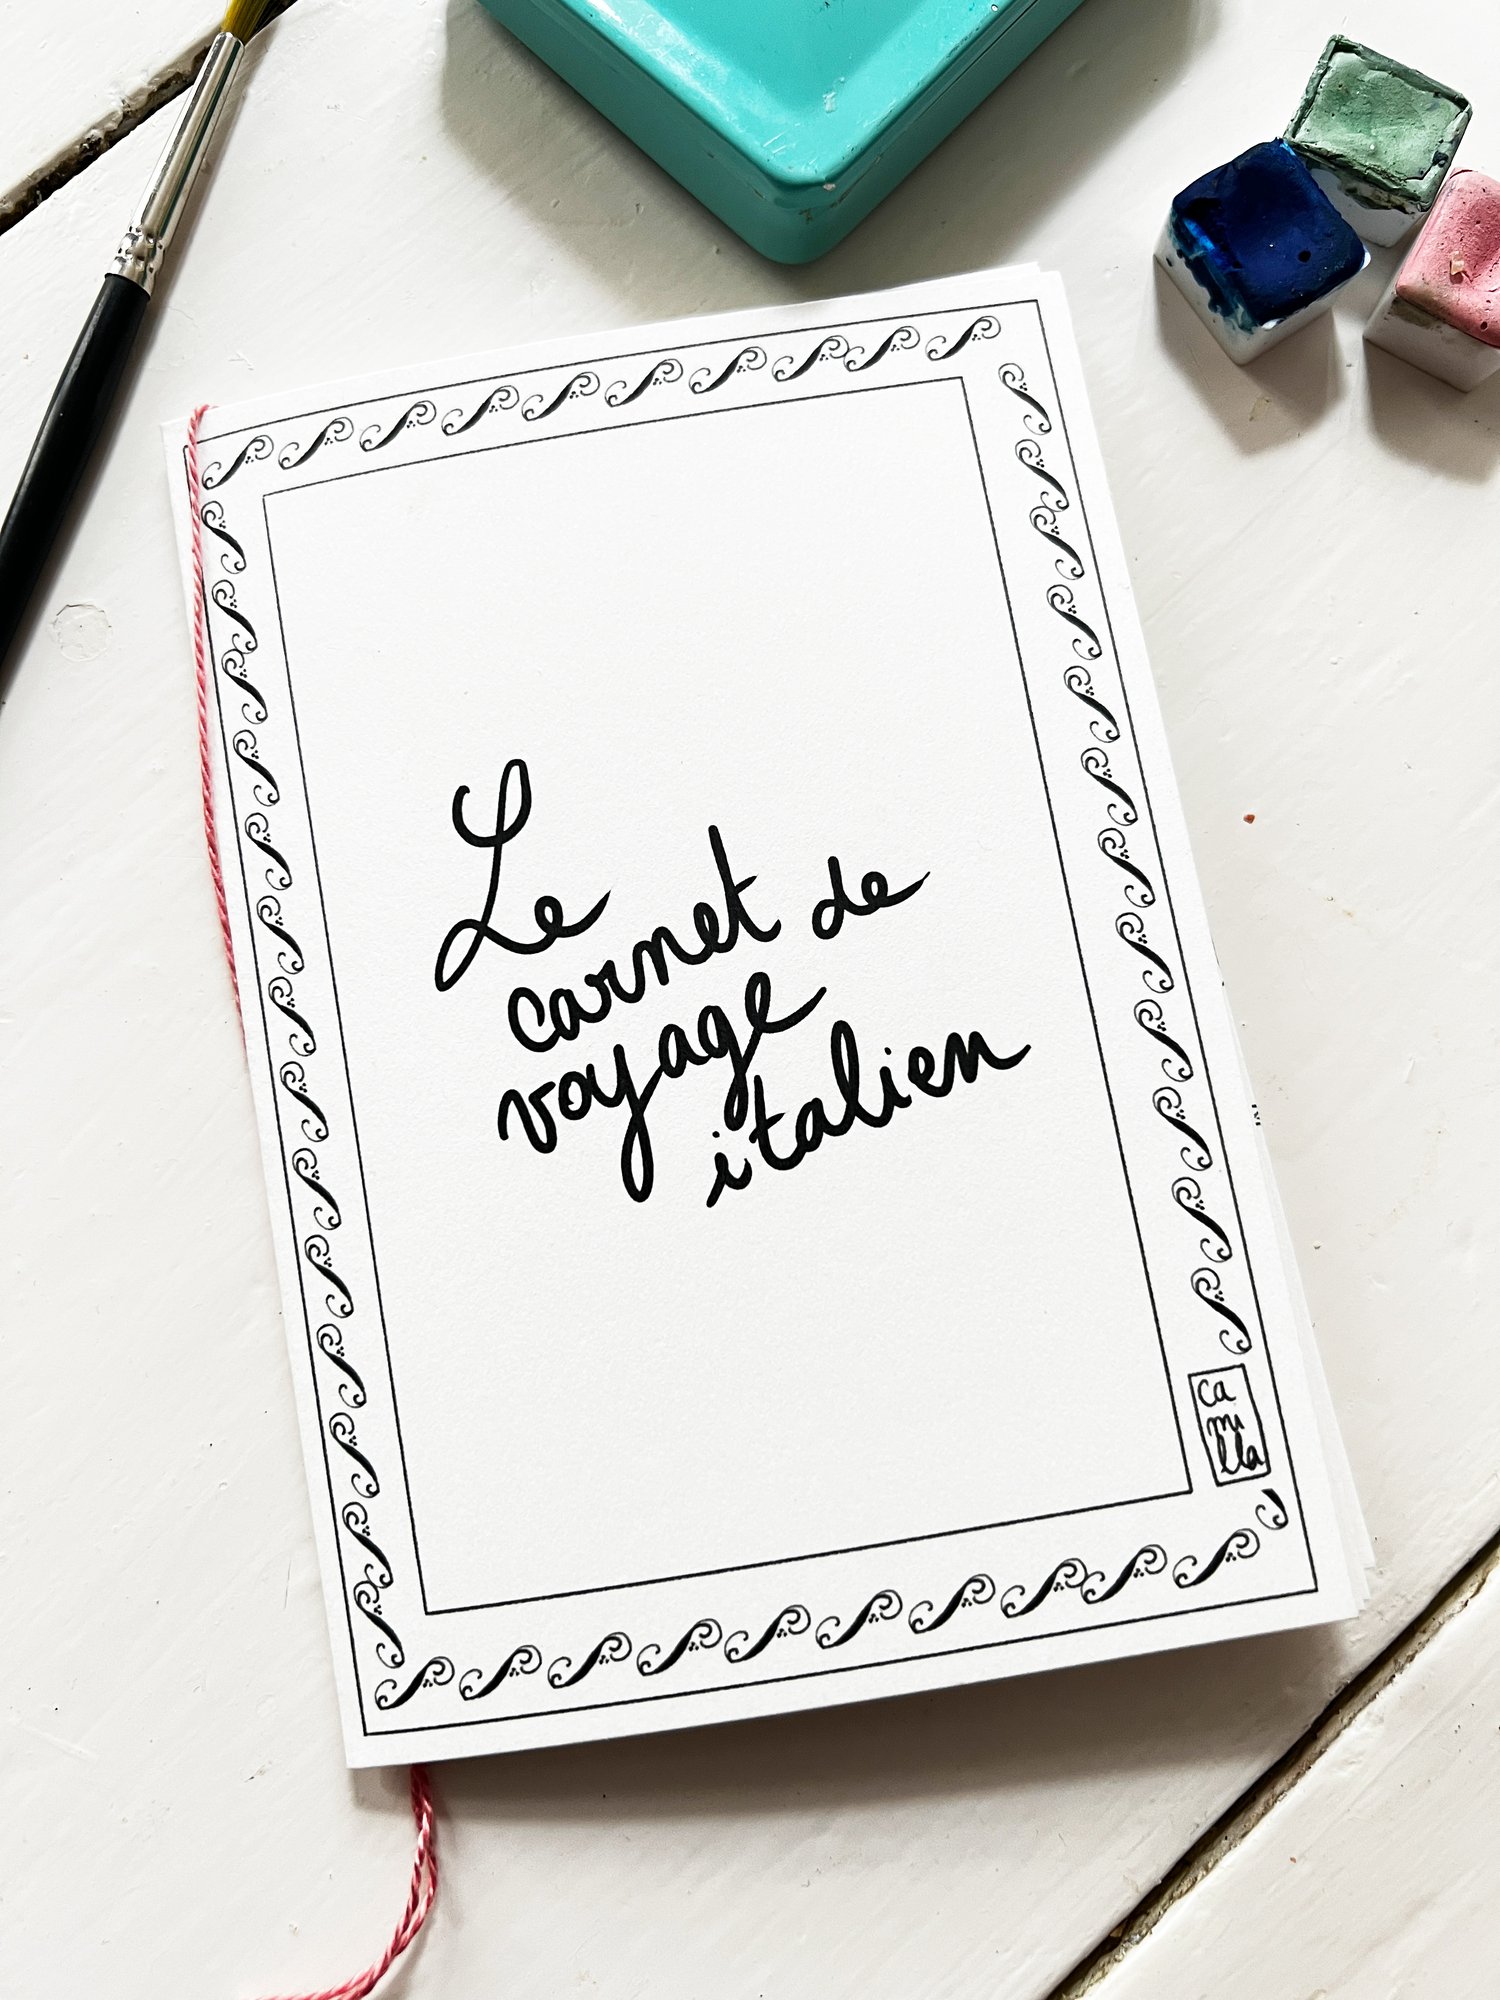 Le
carnet de
voyage
italien
ca
mi
lla